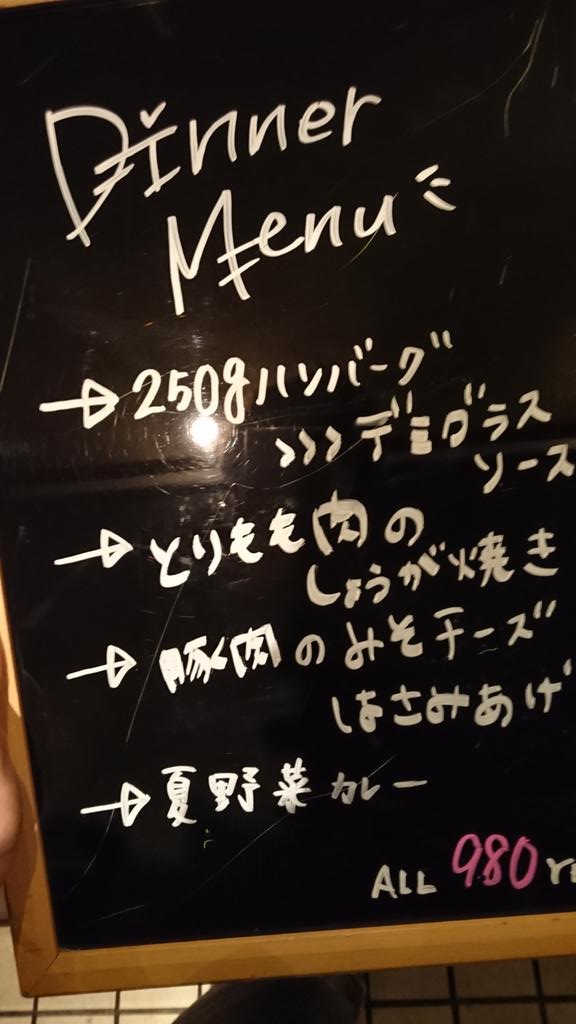 Dinner
Menu
250gハンバーグ
>>>デミグラス
ソース
とりもも肉の
しょうが焼き
豚肉のみそチーズ
はさみあげ
夏野菜カレー
ALL 980